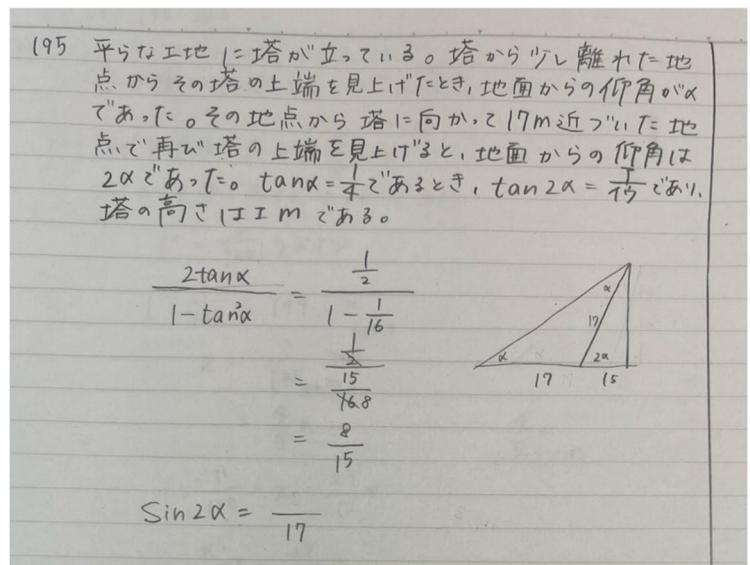 195 平らな土地に塔が立っている。塔から少し離れた地
点からその塔の上端を見上げたとき、地面からの仰角がα
であった。その地点から塔に向かって17m近づいた地
点で再び塔の上端を見上げると、地面からの仰角は
2αであった。tanα=1/4であるとき、tan2α=ア/イウであり、
塔の高さはエmである。
2tanα/(1-tan²α) = (1/2)/(1-1/16)
= (1/2)/(15/16) 8
= 8/15
sin2α = /17
α
17
α
2α
17
15